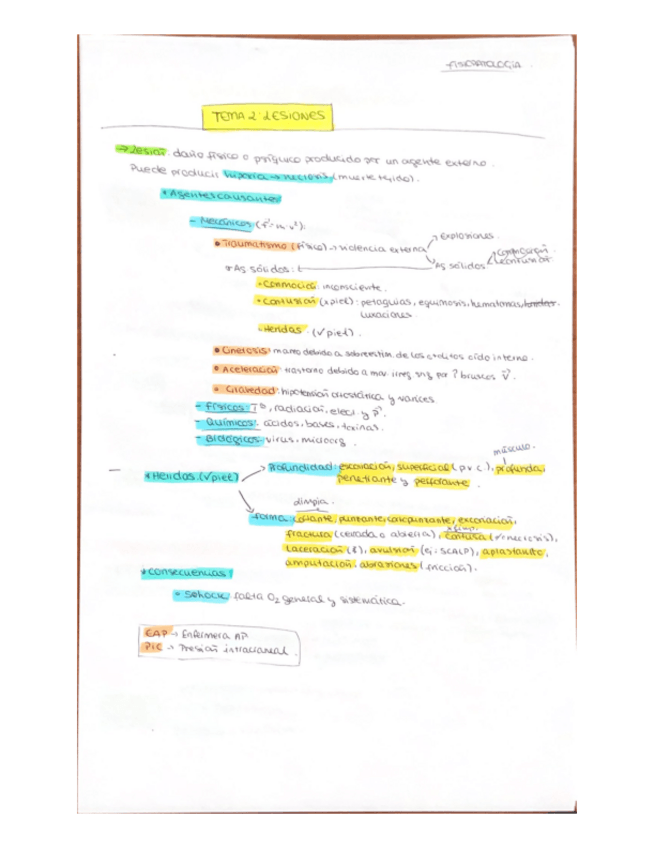 FISIOPATOLOGÍA.
TEMA 2: LESIONES
→ Lesión: daño físico o psíquico producido por un agente externo.
Puede producir hipoxia → necrosis (muerte tejido).
* Agentes causantes
- Mecánicos (F = m · v²):
• Traumatismo (físico) → violencia externa
→ explosiones.
→ Ag sólidos
conmoción
contusión
* Ag sólidos:
• Conmoción: inconsciente.
• Contusión (x piel): petequias, equimosis, hematomas,
luxaciones
- Heridas (√ piel).
• Cinetosis: mareo debido a sobreestim. de los otolitos oído interno.
• Aceleración: trastorno debido a mov. irreg por bruscos V.
• Gravedad: hipotensión ortostática y varices
- Físicos: Tº, radiación, elect. y pº.
- Químicos: ácidos, bases, toxinas.
- Biológicos: virus, microorg.
músculo.
* Heridas (√ piel)
→ Profundidad: excoriación, superficial (p y c), profunda,
penetrante y perforante.
limpia.
→ forma: cortante, punzante, cortopunzante, excoriación,
fractura (cerrada o abierta), contusa (√ necrosis),
Laceración, avulsión (ej: SCALP), aplastamto,
amputación, abrasiones (fricción).
* Consecuencias:
• Schock: falta O₂ general y sistemática.
EAP → Enfermera AP.
PIC → Presión intracraneal.